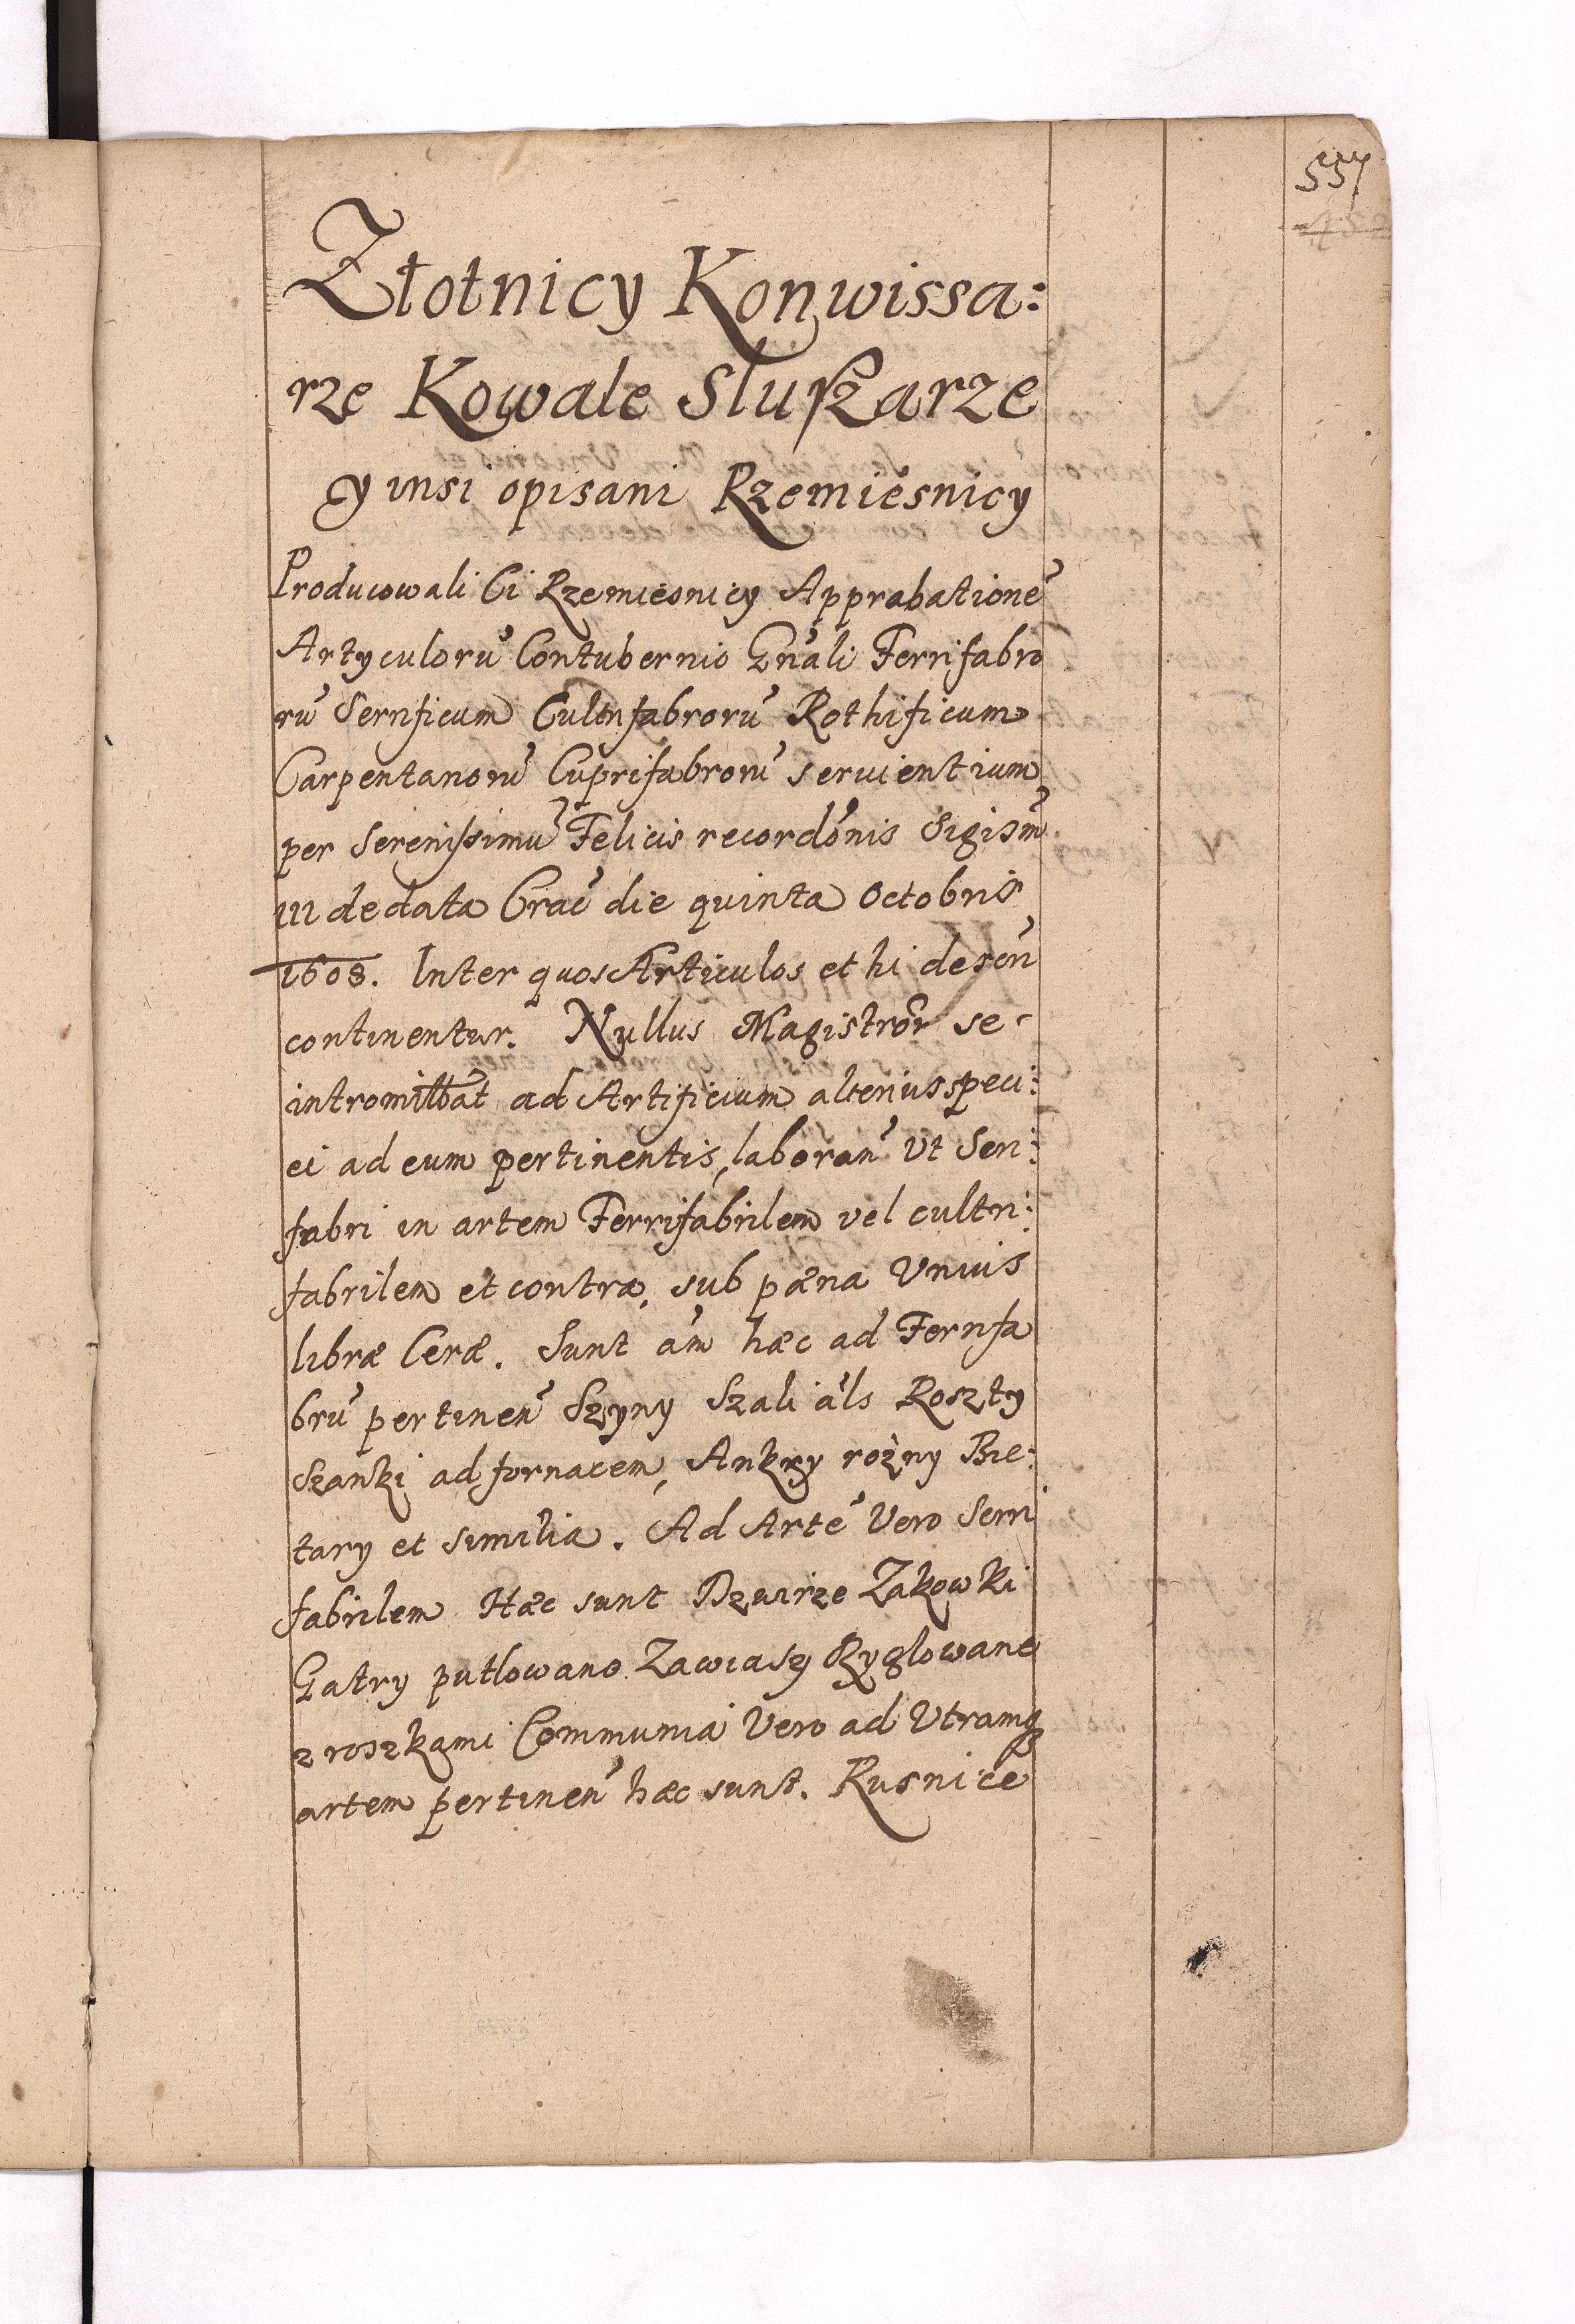 557
Złotnicy Konwissa:
rze Kowale Slußarze
y insi opisani Rzemiesnicy
Producowali Ci Rzemiesnicy Approbationē
Artyculorū Contubernio Gnāli Ferrifabro
rū Serrificum Cultrifabrorū Rothificum
Carpentariorū Cuprifabrorū seruientium
per Serenissimū Felicis recordōnis Sigism̄
III de data Crac̄ die quinta Octobris
1608. Inter quos Articulos et hi deson̄
continentur. Nullus Magistror̄ se
intromittat ad Artificium alterius speci:
ei ad eum pertinentis, laboran̄ Vt Seri:
fabri in artem Ferrifabrilem vel cultri:
fabrilem et contra, sub pæna Vnius
libræ Ceræ. Sunt ām hæc ad Ferrifa
brū pertinen̄ Szyny Szali āls Roszty
Szanki ad fornacem, Ankry rożny Bie:
tary et similia. Ad Artē Vero Serri
fabrilem Hæc sunt Dzwirze Zakowki
Gatry putlowano Zawiasy Ryglowane
z roszkami Communia Vero ad Utramq3
artem pertinen̄ hæc sunt. Rusnice